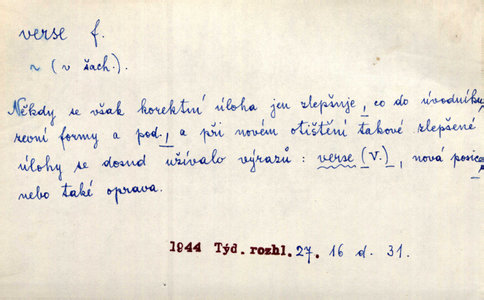 verse f.
~ (v šach.).
Někdy se však korektní úloha jen zlepšuje, co do úvodníku,
revní formy a pod., a při novém otištění takové zlepšené
úlohy se dosud užívalo výrazů: verse (V.), nová posice,
nebo také oprava.
1944 Týd. rozhl. 27. 16 d. 31.